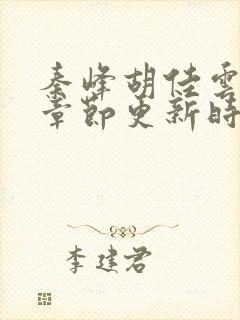 秦峰胡佳雲
章節更新時
李建君